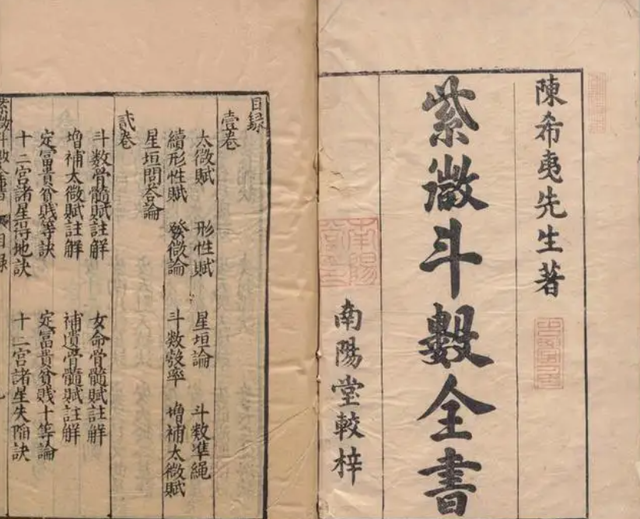 陳希夷先生著
紫微斗數全書
南陽堂較梓
南陽
目錄
壹卷
太微賦 形性賦 星垣論 斗數準繩
續形性賦 發微論 斗數彀率 增補太微賦
星垣問答論
貳卷
斗數骨髓賦註解 女命骨髓賦註解
增補太微賦註解 補遺骨髓賦註解
定富貴貧賤等訣 定富貴貧賤十等論
十二宮諸星得地訣 十二宮諸星失陷訣
目錄